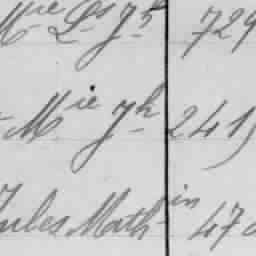 Mie Ls Jh 729
Mie Jh 241
Jules Mathin 47